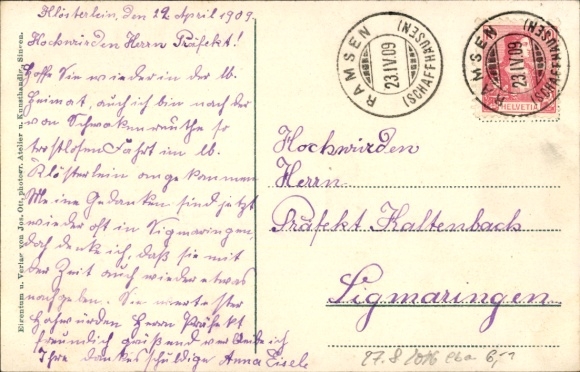 Klösterlein, den 22 April 1909.
Hochwürden Herrn Präfekt!
Hoffe Sie wieder in der lb.
Heimat, auch ich bin nach der
von Schwakenreuthe so
trostlosen Fahrt im lb.
Klösterlein angekommen
Meine Gedanken sind jetzt
wieder oft in Sigmaringen,
doch denke ich, daß sie mit
der Zeit auch wieder etwas
nachgeben. Sie
Hochwürden Herrn Präfekt
freundlich grüßend verbleibe ich
Ihre dankesschuldige Anna Eisele
Eigentum u. Verlag von Jos. Ott, photogr. Atelier u. Kunsthandlg. Singen.
RAMSEN
23.IV.09
(SCHAFFHAUSEN)
RAMSEN
23.IV.09
(SCHAFFHAUSEN)
HELVETIA
Hochwürden
Herrn
Präfekt Kaltenbach
Sigmaringen
27.8 2016 6,-